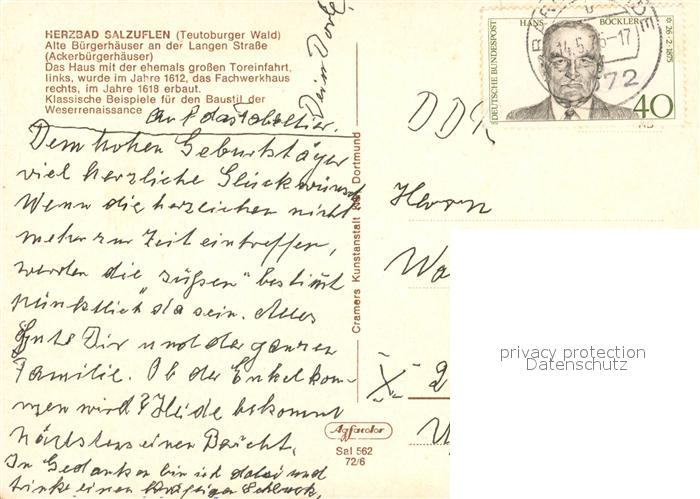 HERZBAD SALZUFLEN (Teutoburger Wald)
Alte Bürgerhäuser an der Langen Straße
(Ackerbürgerhäuser)
Das Haus mit der ehemals großen Toreinfahrt,
links, wurde im Jahre 1612, das Fachwerkhaus
rechts, im Jahre 1618 erbaut.
Klassische Beispiele für den Baustil der
Weserrenaissance
Dem hohen Geburtstäger
viel herzliche Glückwünsche
Wenn die herzlichen nicht
mehr zur Zeit eintreffen,
werden die "süßen" bestimmt
pünktlich da sein. Alles
Gute Dir und der ganzen
Familie. Ob der Enkel kom-
men wird? Heide bekommt
nächstens einen Bericht.
In Gedanken bin ich dabei und
trinke einen Schluck.
Deine Dorle
Cramers Kunstanstalt KG Dortmund
Agfacolor
Sal 562
72/6
DEUTSCHE BUNDESPOST
HANS BÖCKLER
* 26·2·1875
40
14.5.
-17
DDR
Herrn
Wa
X 2
privacy protection
Datenschutz